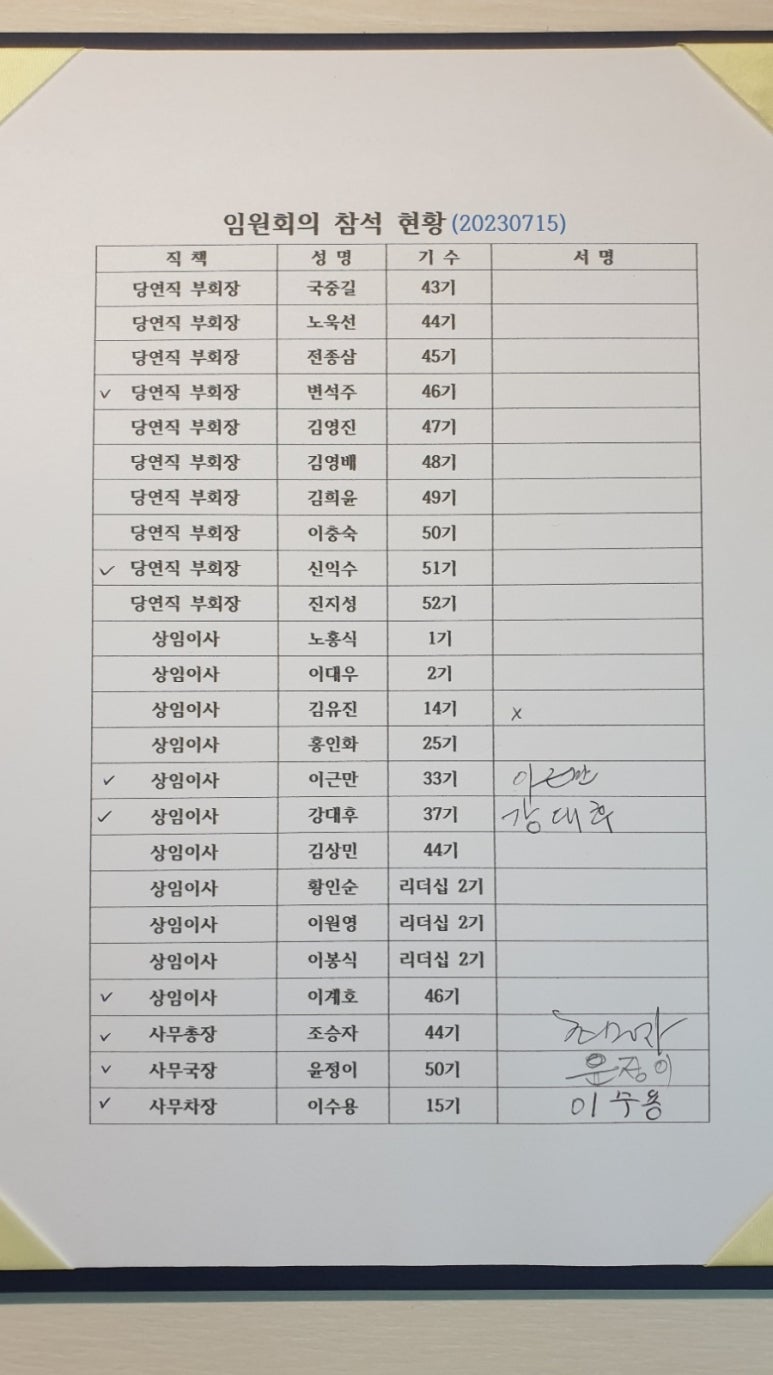 임원회의 참석 현황 (20230715)
직 책 성 명 기 수 서 명
당연직 부회장 국중길 43기
당연직 부회장 노욱선 44기
당연직 부회장 전종삼 45기
✓ 당연직 부회장 변석주 46기
당연직 부회장 김영진 47기
당연직 부회장 김영배 48기
당연직 부회장 김희윤 49기
당연직 부회장 이충숙 50기
✓ 당연직 부회장 신익수 51기
당연직 부회장 진지성 52기
상임이사 노홍식 1기
상임이사 이대우 2기
상임이사 김유진 14기 x
상임이사 홍인화 25기
✓ 상임이사 이근만 33기
✓ 상임이사 강대후 37기 강대후
상임이사 김상민 44기
상임이사 황인순 리더십 2기
상임이사 이원영 리더십 2기
상임이사 이봉식 리더십 2기
✓ 상임이사 이계호 46기
✓ 사무총장 조승자 44기
✓ 사무국장 윤정이 50기 윤정이
✓ 사무차장 이수용 15기 이수용